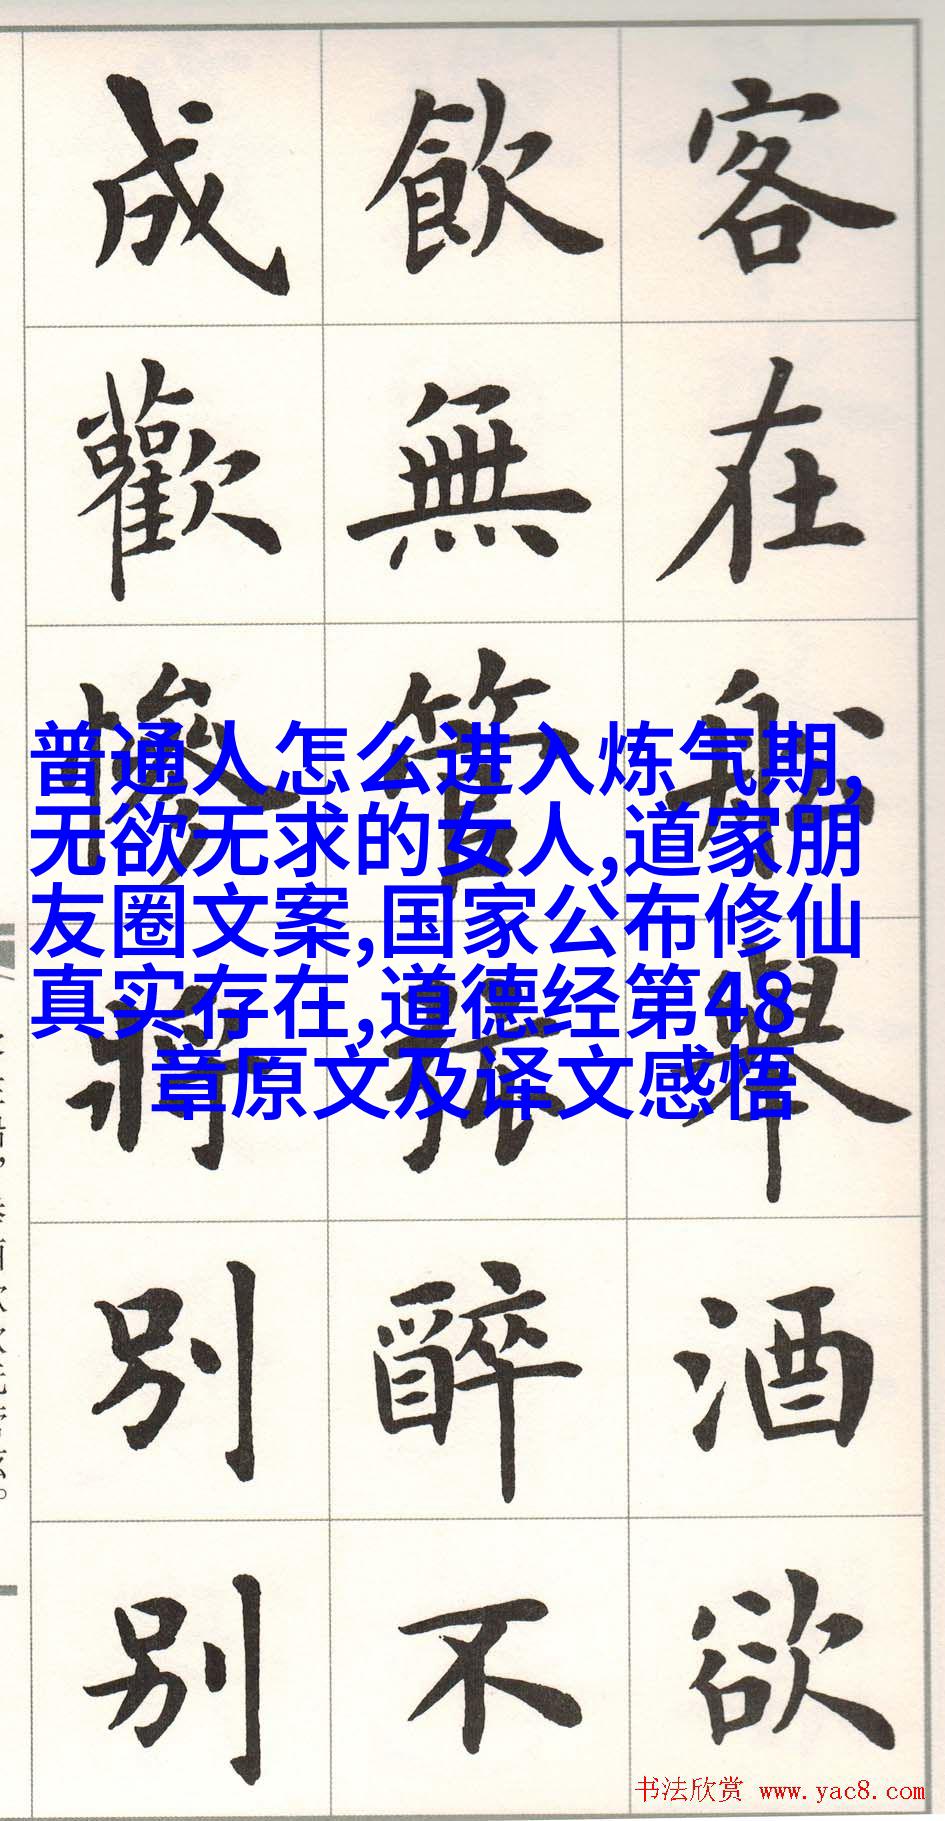 客在船舉酒欲
飲無管絃醉不
成歡慘將別別
普通人怎么进入炼气期,
无欲无求的女人,道家朋
友圈文案,国家公布修仙
真实存在,道德经第48
章原文及译文感悟
书法欣赏 www.yac8.com